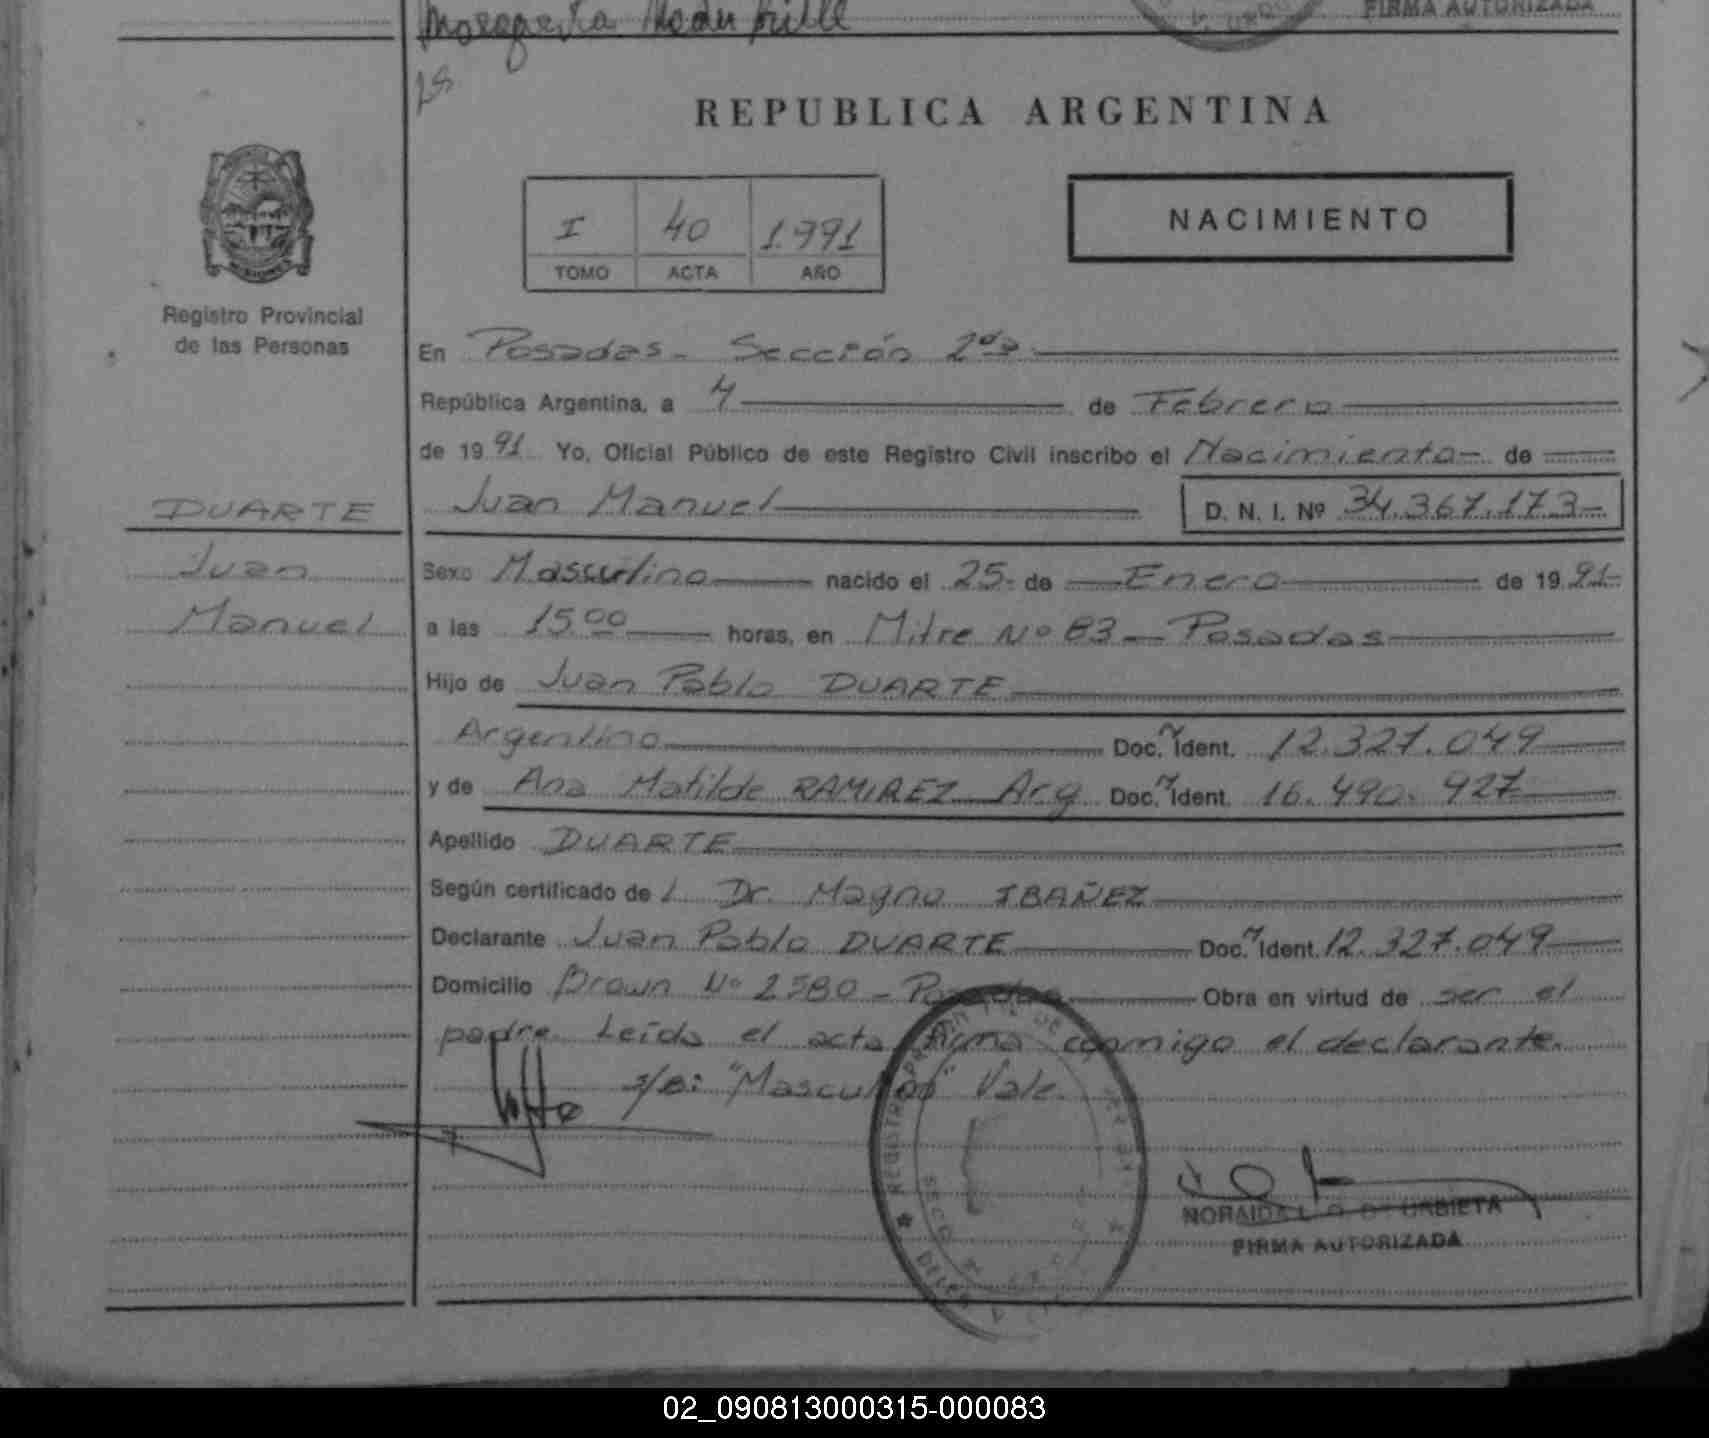 Margarita
FIRMA AUTORIZADA
REPUBLICA ARGENTINA
I 40 1.991
TOMO ACTA AÑO
NACIMIENTO
Registro Provincial
de las Personas
En Posadas - Sección 2da
República Argentina, a 4 de Febrero
de 1991 Yo, Oficial Público de este Registro Civil inscribo el Nacimiento de
DUARTE
Juan
Manuel
Juan Manuel D. N. I. Nº 34.367.173-
Sexo Masculino nacido el 25- de Enero de 1991-
a las 15.00 horas, en Mitre Nº 83 - Posadas
Hijo de Juan Pablo DUARTE
Argentino Doc. Ident. 12.327.049
y de Ana Matilde RAMIREZ Arg Doc. Ident. 16.490.927
Apellido DUARTE
Según certificado de l Dr. Magno IBAÑEZ
Declarante Juan Pablo DUARTE Doc. Ident. 12.327.049
Domicilio Brown Nº 2580 - Posadas Obra en virtud de ser el
padre. Leída el acta firma conmigo el declarante.
s/e: "Masculino" Vale.
REGISTRO
NORAIDA URBIETA
FIRMA AUTORIZADA
02_090813000315-000083